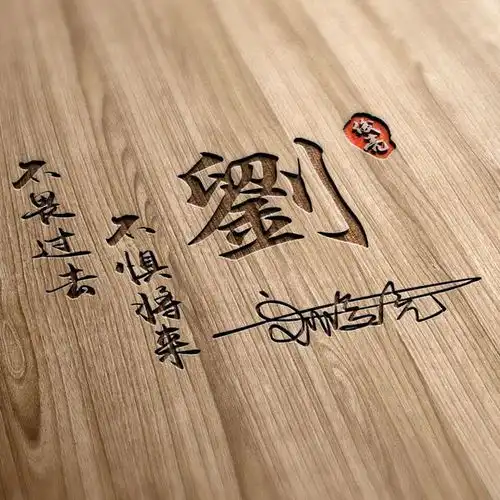 不畏过去
不惧将来
劉